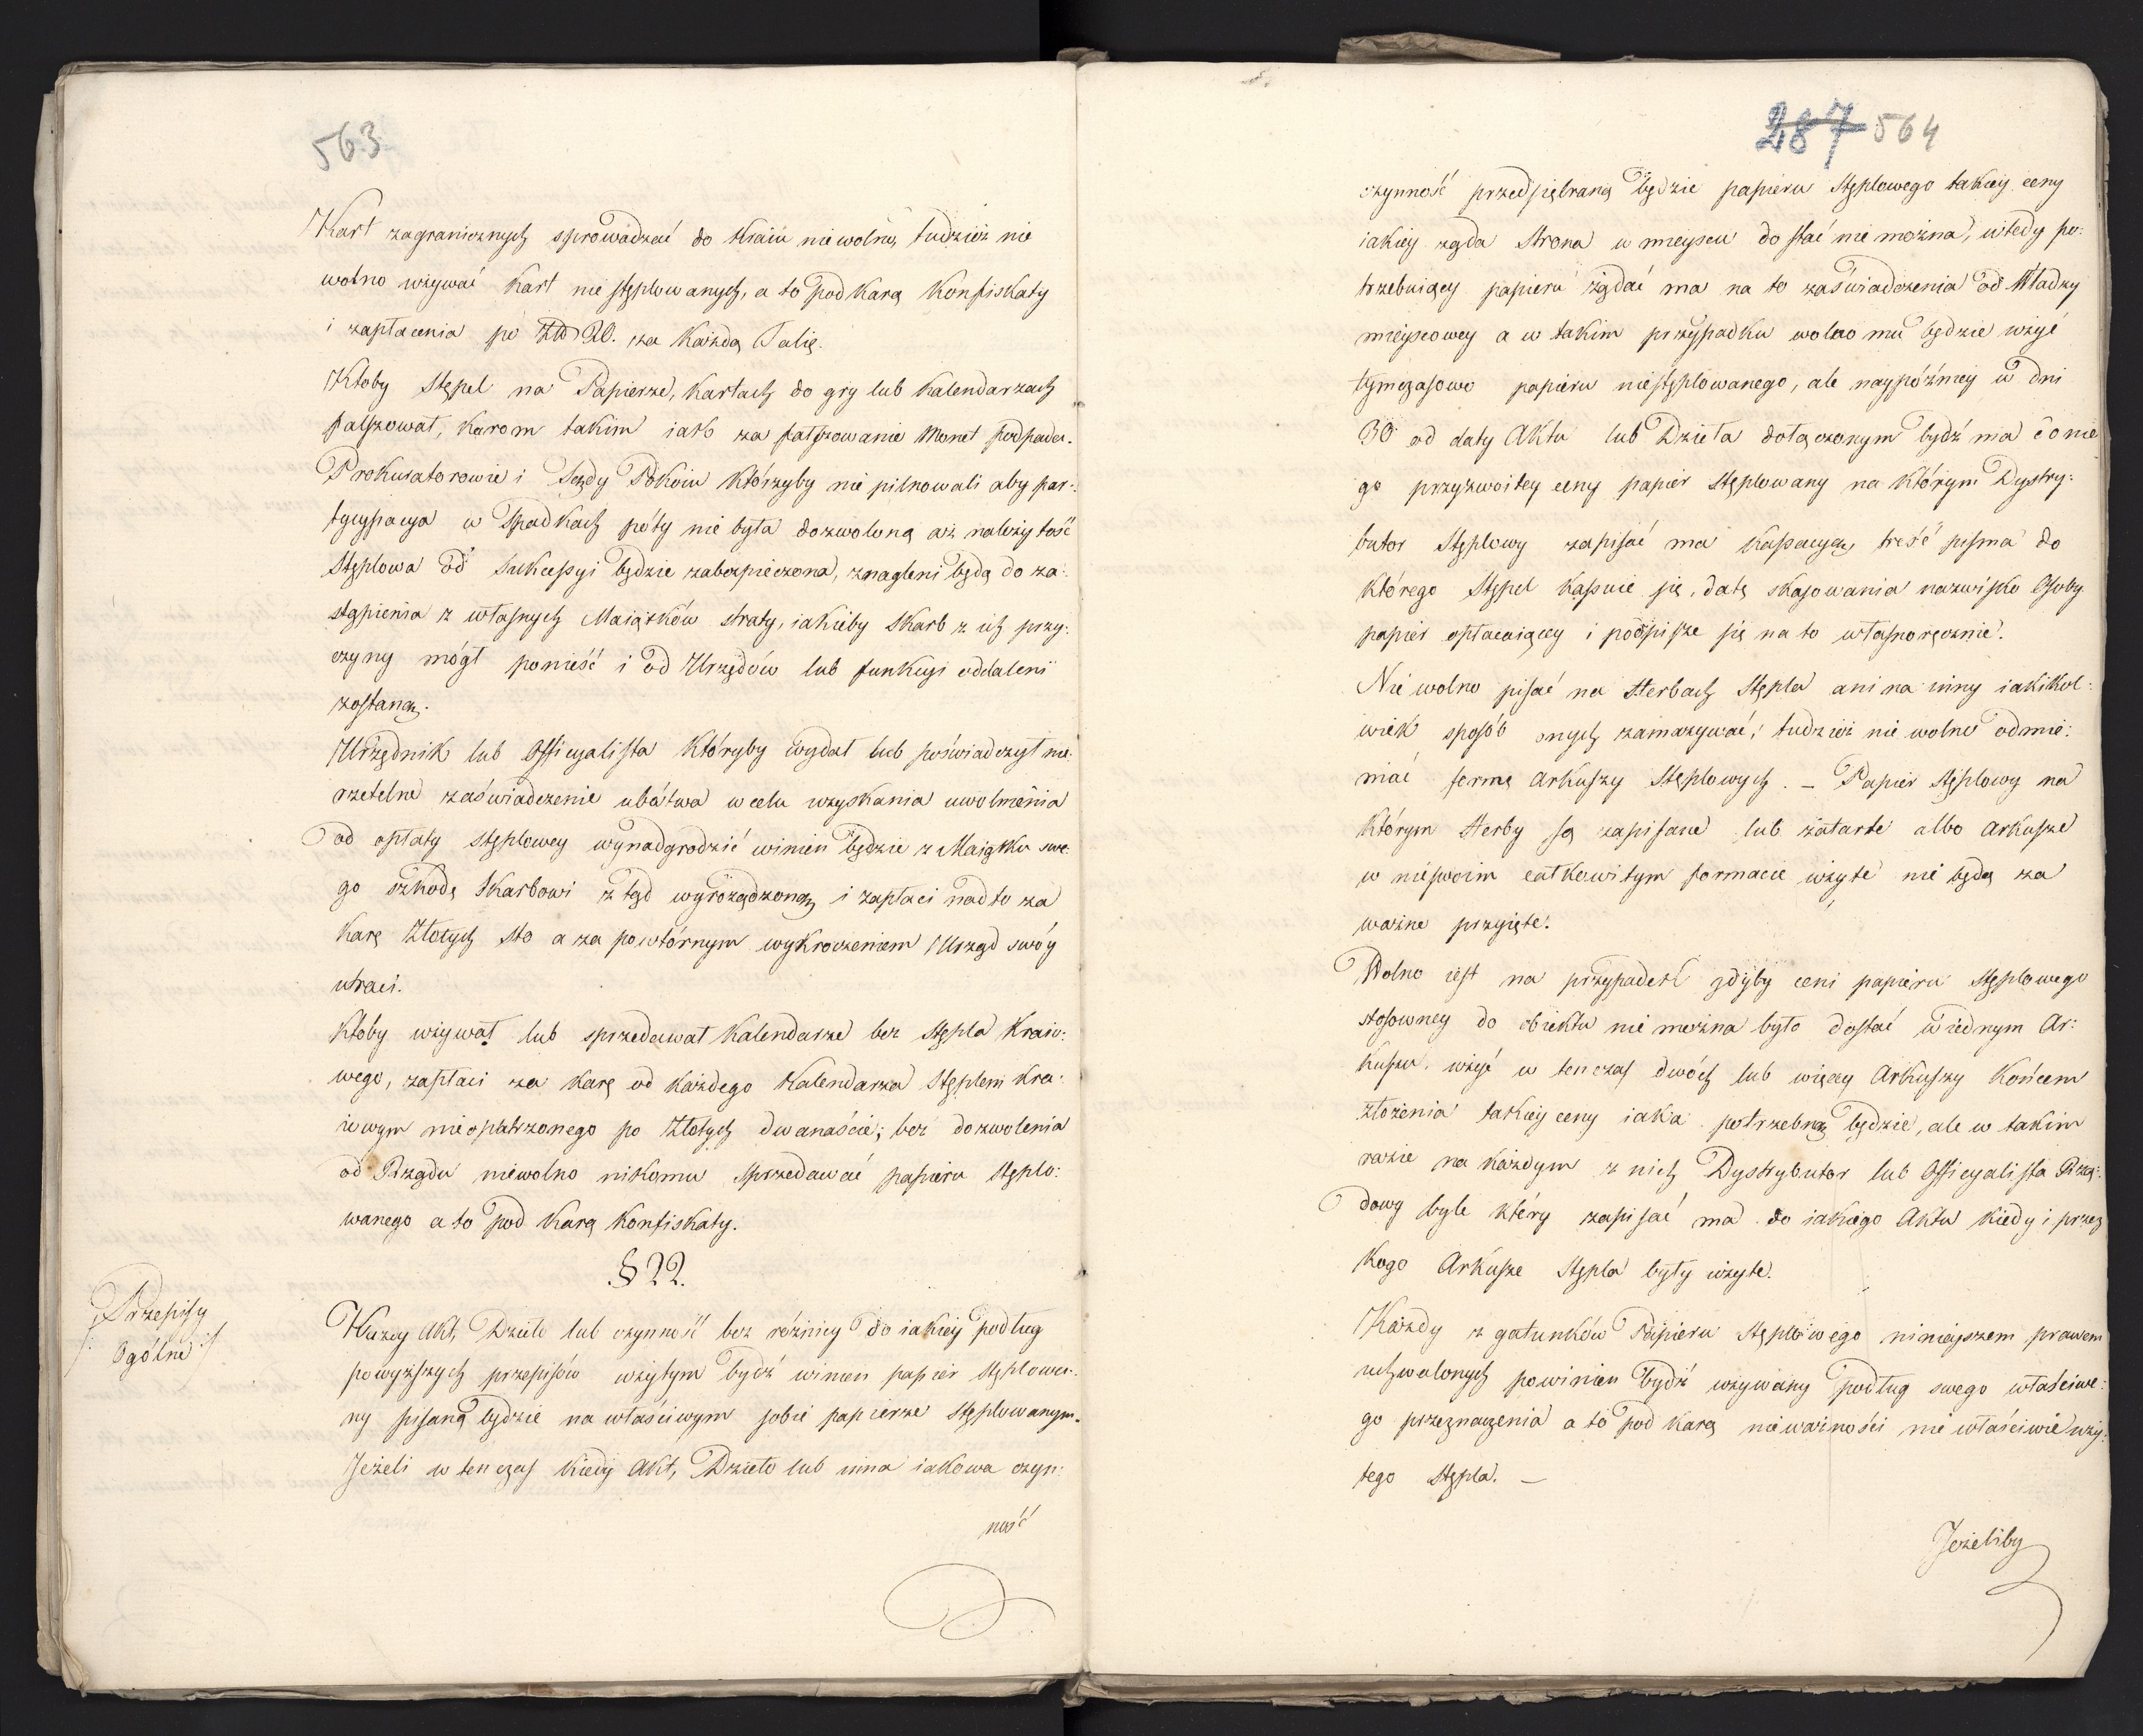 563
Kart zagranicznych sprowadzać do Kraiu niewolno, tudzież nie
wolno używać Kart niestęplowanych, a to pod karą Konfiskaty
i zapłacenia po Złł 20. za Każdą Talię.
Ktoby Stępel na Papierze, Kartach do gry lub Kalendarzach
fałszował, Karom takim iak za fałszowanie Monet podpada.
Prokuratorowie i Sądy Pokoiu którzyby nie pilnowali aby par:
tycypacya w Spadkach póty nie była dozwoloną aż należytość
Stęplowa od Sukcessyi będzie zabezpieczona, znagleni będą do za:
stąpienia z własnych Maiątków straty, iakieby Skarb z ich przy:
czyny mógł ponieść i od Urzędów lub funkcyi oddaleni
zostaną.
Urzędnik lub Officyalista któryby wydał lub poświadczył nie:
rzetelne zaświadczenie ubóstwa w celu uzyskania uwolnienia
od opłaty stęplowey wynadgrodzić winien będzie z Maiątku swe:
go szkodę Skarbowi ztąd wyrządzoną i zapłaci nadto za
karę Złotych sto a za powtórnym wykroczeniem Urząd swóy
utraci.
Ktoby używał lub sprzedawał Kalendarze bez Stępla Kraio:
wego, zapłaci za karę od każdego Kalendarza Stęplem Kra:
iowym nieopatrzonego po Złotych dwanaście; bez dozwolenia
od Rządu niewolno nikomu sprzedawać papieru stęplo:
wanego a to pod karą Konfiskaty.
§ 22.
Przepisy
/: Ogólne :/
Każdy Akt, Dzieło lub czynność bez różnicy do iakiey podług
powyższych przepisów użytym bydź winien papier stęplowa:
ny pisaną będzie na właściwym sobie papierze stęplowanym.
Jeżeli w tenczas kiedy Akt, Dzieło lub inna iakowa czyn:
ność
287 564
czynność przedsiębraną będzie papieru Stęplowego takiey ceny
iakiey żąda Strona w mieyscu dostać nie można, wtedy po:
trzebuiący papieru żądać ma na to zaświadczenia od Władzy
mieyscowey a w takim przypadku wolno mu będzie użyć
tymczasowo papieru niestęplowanego, ale naypóźniey w dni
30 od daty Aktu lub Dzieła dołączonym bydź ma do nie
go przyzwoitey ceny papier Stęplowany na którym Dystry:
butor Stęplowy zapisać ma kassacyą, treść pisma do
którego Stępel kassuie się, datę skasowania nazwisko Osoby
papier opłacaiącey i podpisze się na to własnoręcznie.
Nie wolno pisać na Herbach Stępla ani na inny iakikol:
wiek sposób onych zamazywać, tudzież nie wolno odmie:
niać formę Arkuszy Stęplowych. – Papier Stęplowy na
którym Herby są zapisane lub zatarte albo Arkusze
w nieswoim całkowitym formacie użyte nie będą za
ważne przyięte.
Wolno iest na przypadek gdyby ceni papieru Stęplowego
stosowney do obiektu nie można było dostać w iednym Ar:
kuszu użyć w tenczas dwóch lub więcey Arkuszy Końcem
złożenia takiey ceny iaka potrzebną będzie, ale w takim
razie na każdym z nich Dystrybutor lub Officyalista Rzą:
dowy byle który zapisać ma do iakiego Aktu kiedy i przez
Kogo Arkusze Stępla były użyte.
Każdy z gatunków Papieru Stęplowego ninieyszem prawem
uchwalonych powinien bydź używany podług swego właściwe:
go przeznaczenia a to pod karą nieważności nie właściwie uży:
tego Stępla. –
Jeżeliby